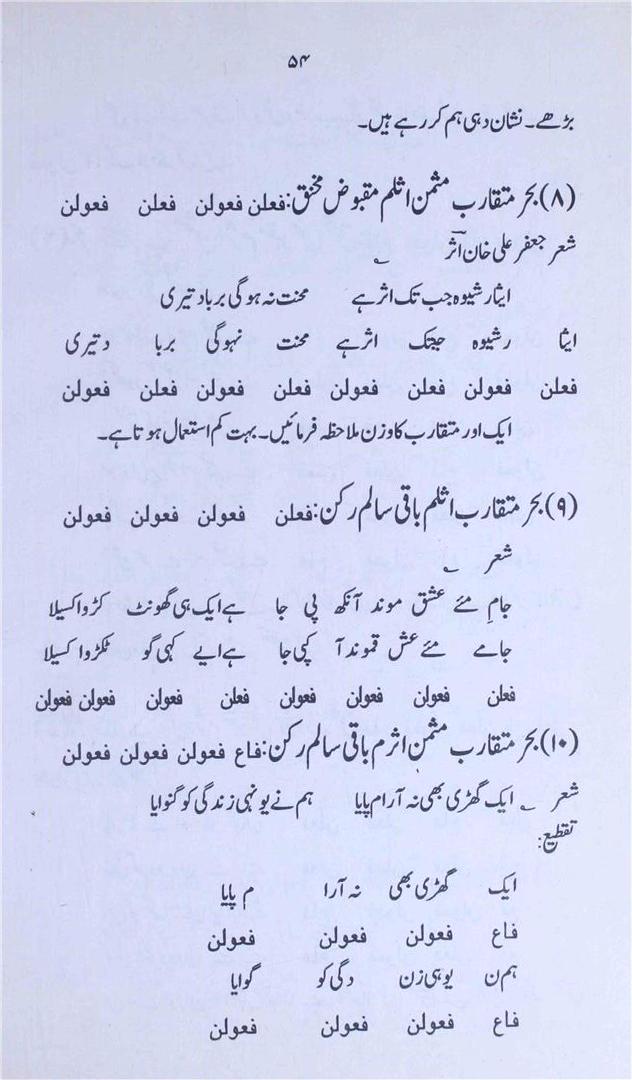 ۵۴
بڑھے۔ نشان دہی ہم کر رہے ہیں۔
(۸) بحر متقارب مثمن اثلم مقبوض مخنق: فعلن فعولن فعلن فعولن
شعر جعفر علی خان اثر
ایثار شیوہ جب تک اثر ہے محنت نہ ہو گی برباد تیری
ایثا رشیوہ جبتک اثر ہے محنت نہوگی بربا دتیری
فعلن فعولن فعلن فعولن فعلن فعولن فعلن فعولن
ایک اور متقارب کا وزن ملاحظہ فرمائیں۔ بہت کم استعمال ہوتا ہے۔
(۹) بحر متقارب اثلم باقی سالم رکن: فعلن فعولن فعولن فعولن
شعر
جامِ مئے عشق موند آنکھ پی جا ہے ایک ہی گھونٹ کڑوا کسیلا
جامے مئے عش قموند آ کپی جا ہے ایے کہی گو ٹکڑوا کسیلا
فعلن فعولن فعولن فعولن فعلن فعولن فعولن فعولن
(۱۰) بحر متقارب مثمن اثرم باقی سالم رکن: فاع فعولن فعولن فعولن
شعر ایک گھڑی بھی نہ آرام پایا ہم نے یونہی زندگی کو گنوایا
تقطیع:
ایک گھڑی بھی نہ آرا م پایا
فاع فعولن فعولن فعولن
ہم ن یوہی زن دگی کو گوایا
فاع فعولن فعولن فعولن